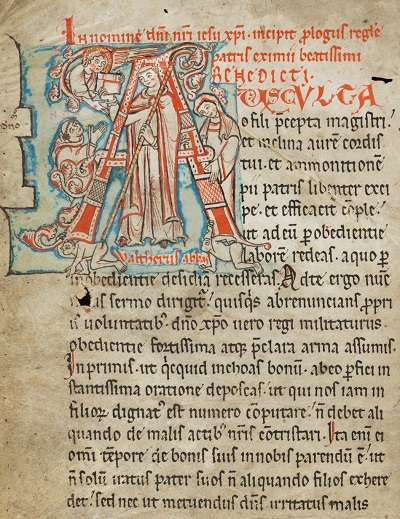 In nomine dñi nr̃i iesu xp̃i. incipit plogus regłe
patris eximii beatissimi
BENEDICTI.
AOSCULTA
o fili p̃cepta magistri.
et inclina aurẽ cordis
tui. et ammonitionẽ
pii patris libenter exci
pe. et efficacit̃ cõple.
ut ad eũ p obedientie
laborẽ redeas. a quo p
Waltherus abbas
inobedientie desidiã recesseras. Ad te ergo nunc
sermo dirigit. quisq̃s abrenuncians ppri
is voluntatib; dño xp̃o vero regi militaturus
obedientie fortissima atq; p̃clara arma assumis.
In primis. ut q̃cquid inchoas bonũ. ab eo pfici in
stantissima oratione deposcas. ut qui nos iam in
filioꝝ dignat est numero cõputare. ñ debet ali
quando de malis actib; nr̃is cõtristari. Ita eni ei
omi tẽpore de bonis suis in nobis parendũ ẽ. ut
ñ solũ iratus pater suos ñ aliquando filios exhere
det. sed nec ut metuendus dñs irritatus malis